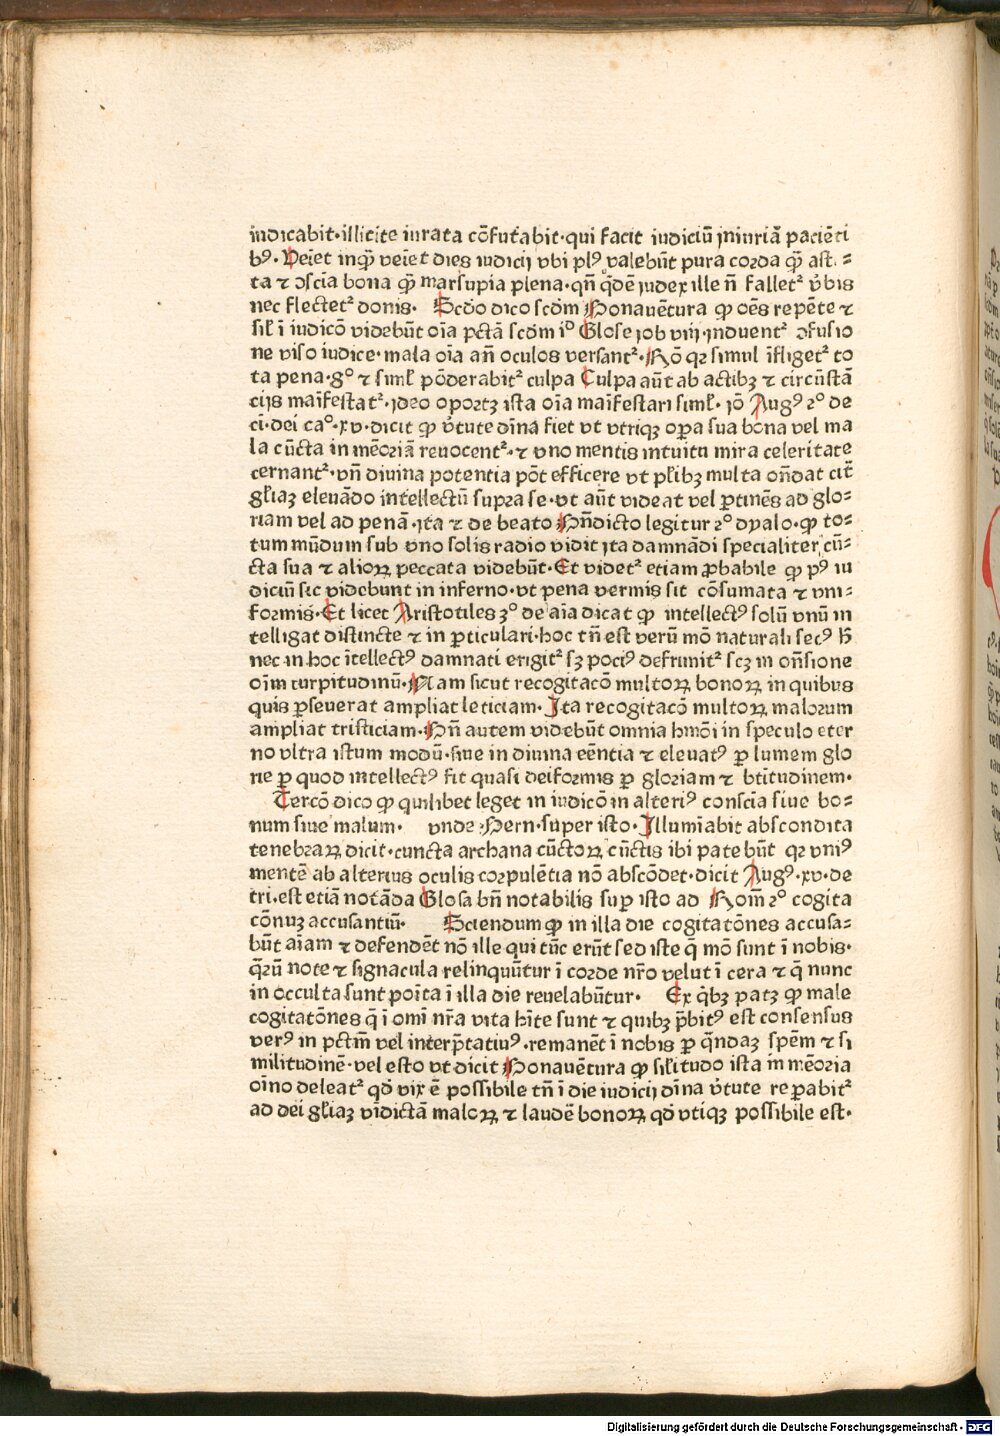 iudicabit·illicite iurata cōfutabit·qui facit iudiciū ɉniuriā paciēti
bꝰ· Veīet inqͣꝫ veīet dies iudicij vbi plꝰ valebūt pura corda qͣꝫ ast =
ta ⁊ ↄscīa bona qͣꝫ marsupia plena·qn̄ qͥdē iudex ille n̄ falletᷣ v̄bis
nec flectetᷣ donis· Scdo dico scdm Bonauētura ꝙ oēs repēte ⁊
sil̄ ī iudicō videbūt oīa pctā scdm iᵈ Glose job viij·induentᷣ ↄfusio
ne viso iudice·mala oīa an̄ oculos versantᷣ·Rō qꝛ simul īfligetᷣ to
ta pena·gᵒ ⁊ siml̄ pōderabitᷣ culpa Culpa aūt ab actibꝫ ⁊ circūstā
cijs maīfestatᷣ·jdeo oportꝫ ista oīa maīfestari siml̄· jō Augꝰ 2ᵒ de
ci·dei caᵒ·xv·dicit ꝙ v̄tute dīna fiet vt vtriqꝫ oꝑa sua bona vel ma
la cūcta in mēoriā reuocentᷣ·⁊ vno mentis intuitu mira celeritate
cernantᷣ·vn̄ diuina potentia pōt efficere vt pl̄ibꝫ multa on̄dat cit̄
gl̄iaꝫ eleuādo intellectū supra se·vt aūt videat vel ꝑtinēs ad glo=
riam vel ad penā·ɉta ⁊ de beato Bn̄dicto legitur 2ᵒ dyalo·ꝙ to=
tum mūdum sub vno solis radio vidit ɉta damnādi specialiter cū=
cta sua ⁊ alioꝝ peccata videbūt·Et videtᷣ etiam ꝓbabile ꝙ pꝰ iu
diciū sic videbunt in inferno·vt pena vermis sit cōsumata ⁊ vni=
formis·Et licet Aristotiles 3ᵒ de aīa dicat ꝙ intellectꝰ solū vnū in
telligat distincte ⁊ in ꝑticulari·hoc tn̄ est verū mō naturali secꝰ h̄
nec in hoc ītellectꝰ damnati erigitᷣ sꝫ pociꝰ defrimitᷣ scꝫ in on̄sione
oīm turpitudinū·Nam sicut recogitacō multoꝝ bonoꝝ in quibus
quis ꝑseuerat ampliat leticiam· Ita recogitacō multoꝝ malorum
ampliat tristiciam·Bn̄ autem videbūt omnia hmōi in speculo eter
no vltra istum modū·siue in diuina eēntia ⁊ eleuatꝰ ꝑ lumem glo
rie ꝑ quod intellectꝰ fit quasi deiformis ꝑ gloriam ⁊ btītudinem·
Tercō dico ꝙ quilibet leget in iudicō in alteriꝰ conscīa siue bo=
num siue malum· vnde Bern·super isto·Illumīabit abscondita
tenebraꝝ dicit·cuncta archana cūctoꝝ cūctis ibi patebūt qꝛ vniꝰ
mentē ab alterius oculis corpulētia nō abscōdet·dicit Augꝰ·xv·de
tri·est etiā notāda Glosa bn̄ notabilis suꝑ isto ad Rom̄ 2ᵒ cogita
cōnuꝫ accusantiū· Sciendum ꝙ in illa die cogitatōnes accusa=
būt aīam ⁊ defendēt nō ille qui tūc erūt sed iste q̄ mō sunt ī nobis·
qͣrū note ⁊ signacula relinquūtur ī corde nr̄o velut ī cera ⁊ q̄ nunc
in occulta sunt poīta ī illa die reuelabūtur· Ex qͥbꝫ patꝫ ꝙ male
cogitatōnes q̄ ī omī nr̄a vita hīte sunt ⁊ quibꝫ p̄bitꝰ est consensus
verꝰ in pctm̄ vel interp̄tatiuꝰ·remanēt ī nobis ꝑ qͣndaꝫ spēm ⁊ si
militudinē·vel esto vt dicit Bonauētura ꝙ sil̄itudo ista in mēoria
oīno deleatᷣ qd̄ vix ē possibile tn̄ ī die iudicij dīna v̄tute reꝑabitᷣ
ad dei gl̄iaꝫ vīdictā maloꝝ ⁊ laudē bonoꝝ qd̄ vtiqꝫ possibile est·
Digitalisierung gefördert durch die Deutsche Forschungsgemeinschaft - DFG